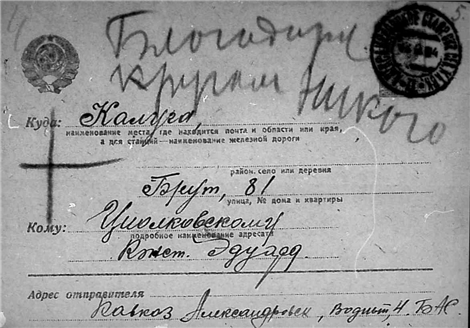 Благодарю
кругом никого
Куда: Калуга,
наименование места, где находится почта и области или края,
а для станций—наименование железной дороги
район, село или деревня
Брут, 81
улица, № дома и квартиры
Кому: Циолковскому
подробное наименование адресата
Конст. Эдуард
Адрес отправителя
Кавказ Александровск, Водны